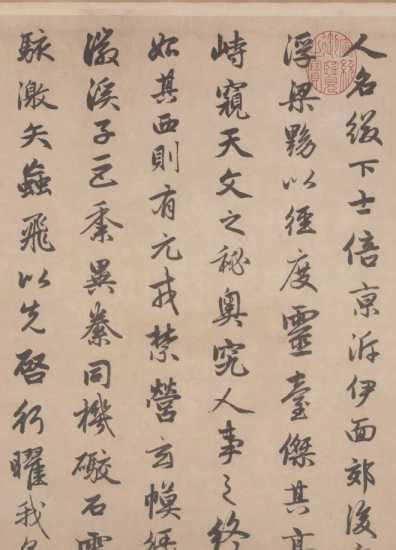 人名綴下士倍京泝伊面郊後
浮梁黝以徑度靈臺傑其高
峙窺天文之秘奧究人事之終
始其西則有元戎禁營玄幙
徽溪子巨黍異絭同機礮石雷
駭激矢蝱飛以先啓行曜我